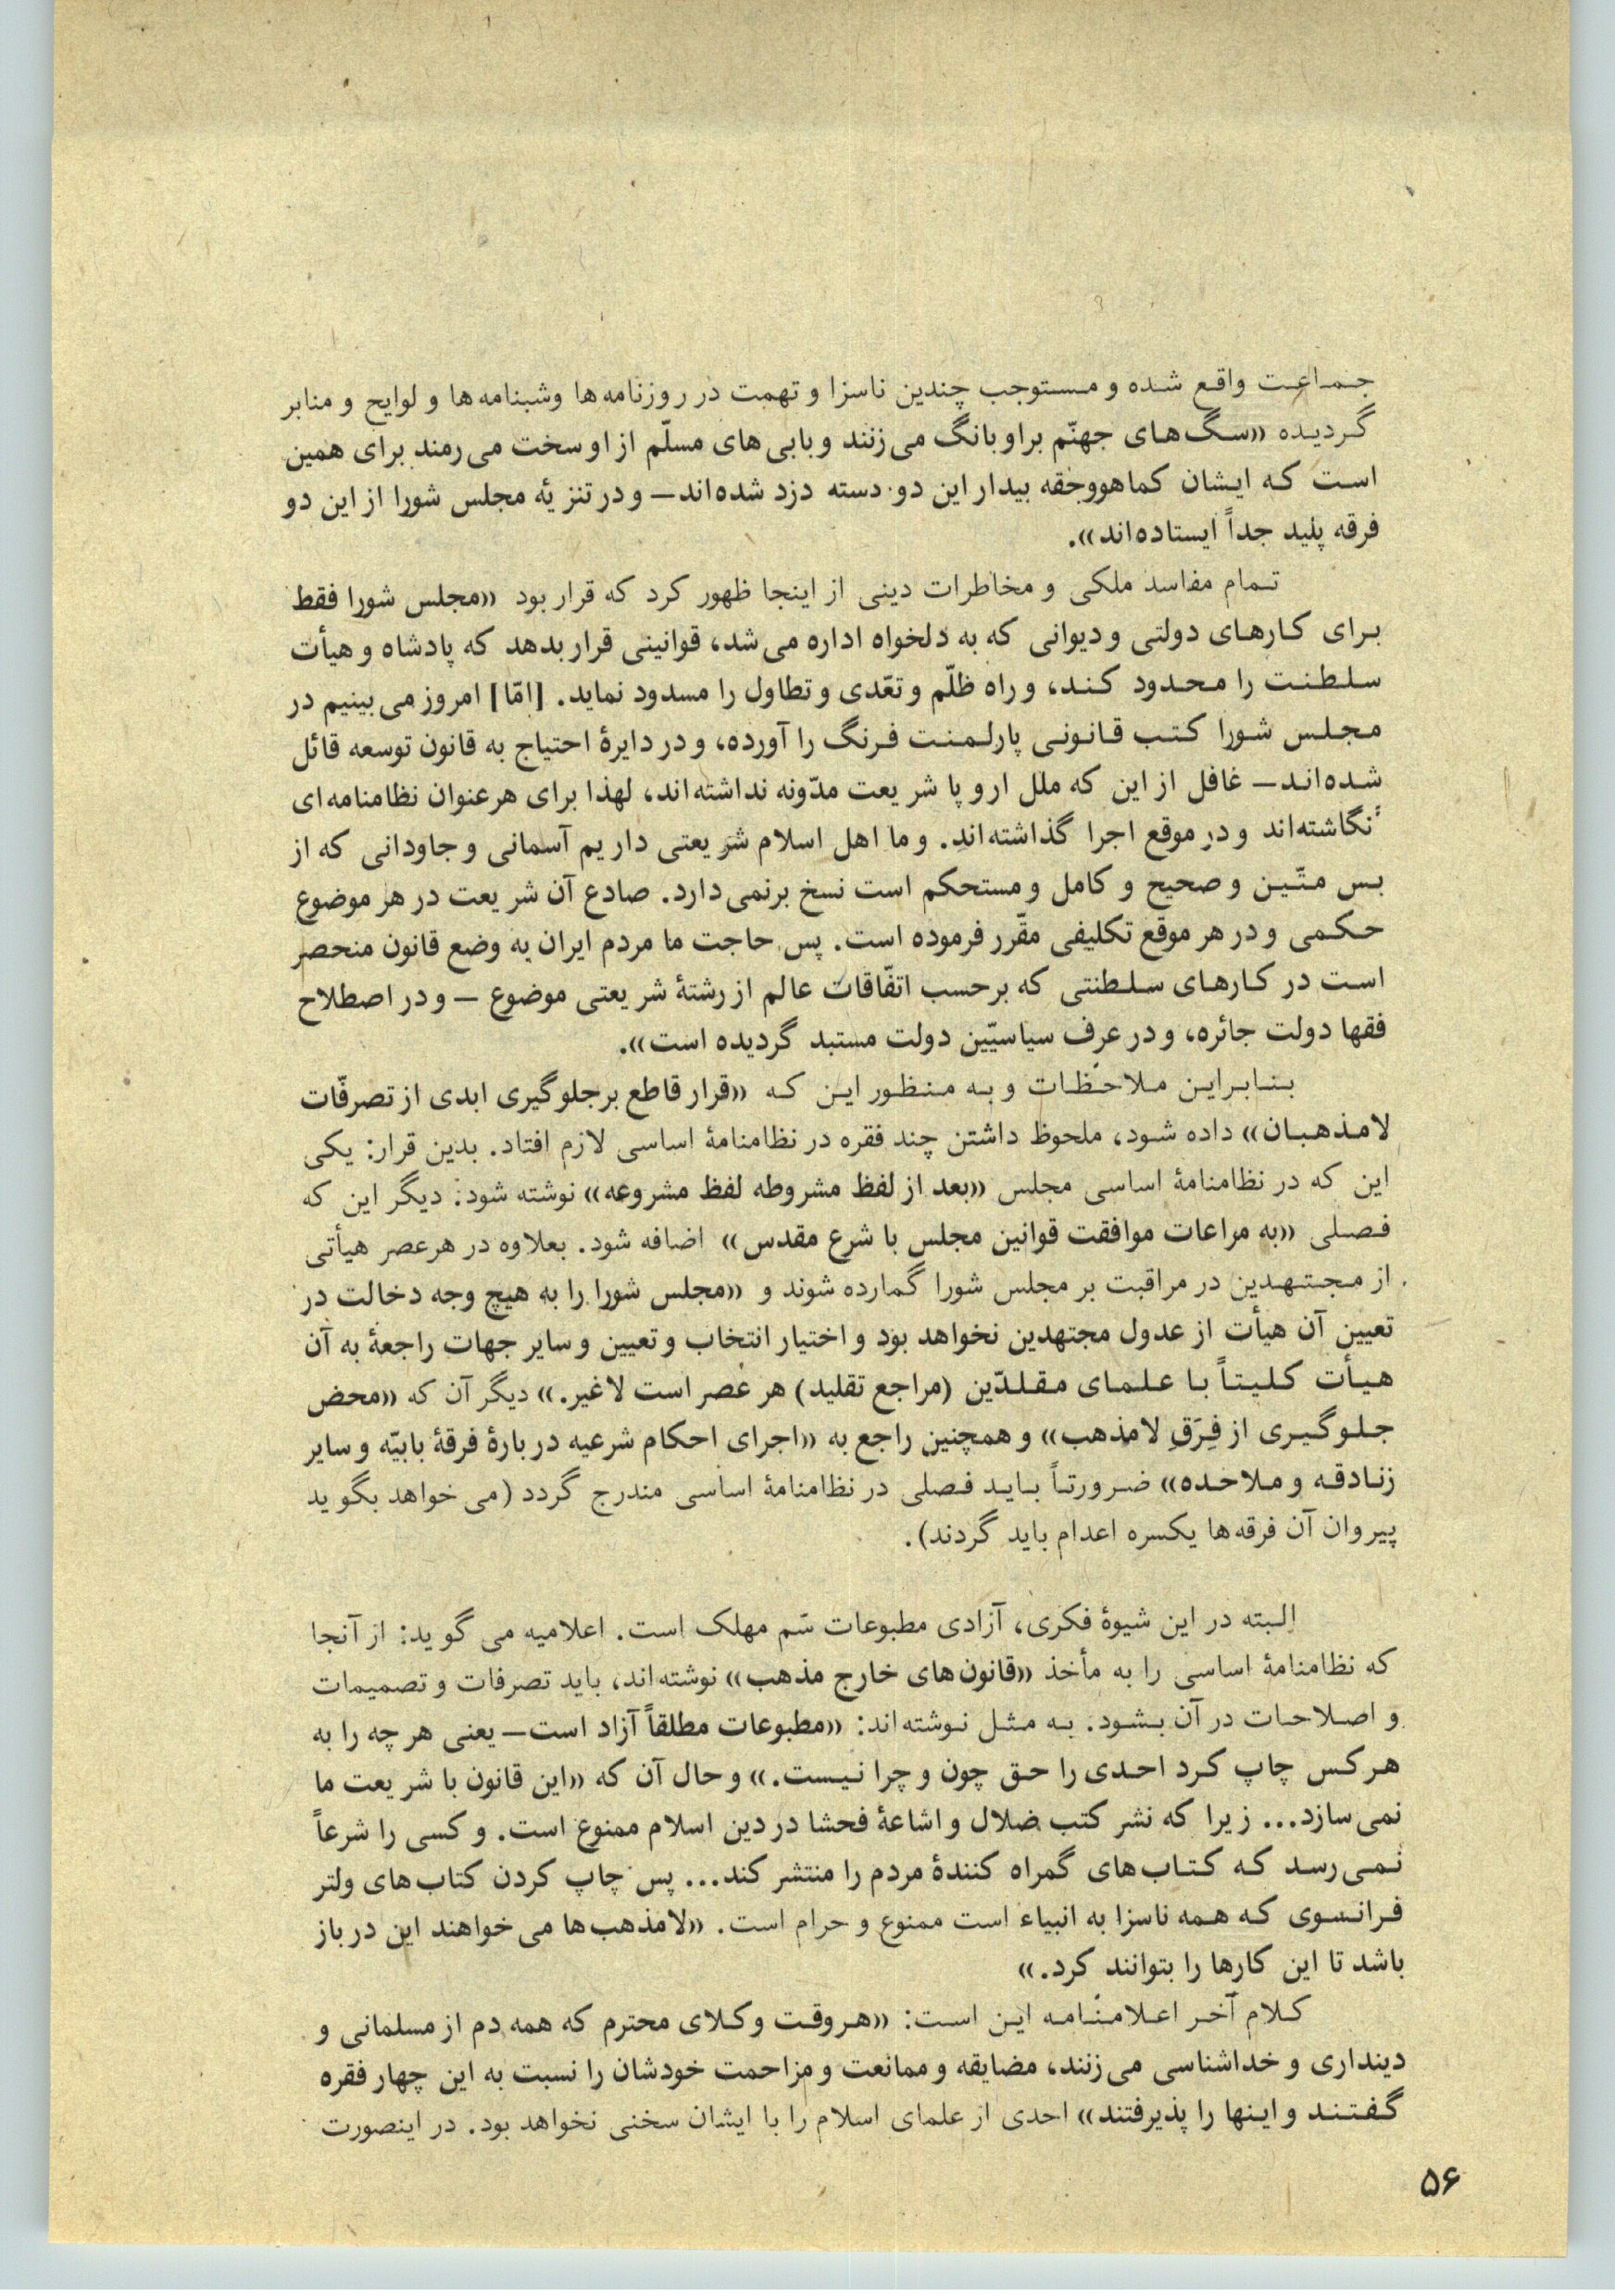 جماعت واقع شده و مستوجب چندین ناسزا و تهمت در روزنامه‌ها وشبنامه‌ها و لوایح و منابر
گردیده «سگ‌های جهنّم براو بانگ می‌زنند و بابی‌های مسلّم از او سخت می‌رمند برای همین
است که ایشان کماهووحقه بیدار این دو دسته دزد شده‌اند— و در تنزیهٔ مجلس شورا از این دو
فرقه پلید جداً ایستاده‌اند».
تمام مفاسد ملکی و مخاطرات دینی از اینجا ظهور کرد که قرار بود «مجلس شورا فقط
برای کارهای دولتی و دیوانی که به دلخواه اداره می‌شد، قوانینی قرار بدهد که پادشاه و هیأت
سلطنت را محدود کند، و راه ظلّم و تعّدی و تطاول را مسدود نماید. [امّا] امروز می‌بینیم در
مجلس شورا کتب قانونی پارلمنت فرنگ را آورده، و در دایرهٔ احتیاج به قانون توسعه قائل
شده‌اند— غافل از این که ملل اروپا شریعت مدّونه نداشته‌اند، لهذا برای هرعنوان نظامنامه‌ای
نگاشته‌اند و در موقع اجرا گذاشته‌اند. و ما اهل اسلام شریعتی داریم آسمانی و جاودانی که از
بس متّین و صحیح و کامل و مستحکم است نسخ برنمی‌دارد. صادع آن شریعت در هر موضوع
حکمی و در هر موقع تکلیفی مقّرر فرموده است. پس حاجت ما مردم ایران به وضع قانون منحصر
است در کارهای سلطنتی که برحسب اتفّاقات عالم از رشتهٔ شریعتی موضوع — و در اصطلاح
فقها دولت جائره، و در عرف سیاسیّین دولت مستبد گردیده است».
بنابراین ملاحظات و به منظور این که «قرار قاطع برجلوگیری ابدی از تصرفّات
لامذهبان» داده شود، ملحوظ داشتن چند فقره در نظامنامهٔ اساسی لازم افتاد. بدین قرار: یکی
این که در نظامنامهٔ اساسی مجلس «بعد از لفظ مشروطه لفظ مشروعه» نوشته شود. دیگر این که
فصلی «به مراعات موافقت قوانین مجلس با شرع مقدس» اضافه شود. بعلاوه در هرعصر هیأتی
از مجتهدین در مراقبت بر مجلس شورا گمارده شوند و «مجلس شورا را به هیچ وجه دخالت در
تعیین آن هیأت از عدول مجتهدین نخواهد بود و اختیار انتخاب و تعیین و سایر جهات راجعهٔ به آن
هیأت کلیتاً با علمای مقلدّین (مراجع تقلید) هر عصر است لاغیر.» دیگر آن که «محض
جلوگیری از فِرَقِ لامذهب» و همچنین راجع به «اجرای احکام شرعیه دربارهٔ فرقهٔ بابیّه و سایر
زنادقه و ملاحده» ضرورتاً باید فصلی در نظامنامهٔ اساسی مندرج گردد (می‌خواهد بگوید
پیروان آن فرقه‌ها یکسره اعدام باید گردند).
البته در این شیوهٔ فکری، آزادی مطبوعات سّم مهلک است. اعلامیه می گوید: از آنجا
که نظامنامهٔ اساسی را به مأخذ «قانون‌های خارج مذهب» نوشته‌اند، باید تصرفات و تصمیمات
و اصلاحات در آن بشود. به مثل نوشته‌اند: «مطبوعات مطلقاً آزاد است— یعنی هر چه را به
هرکس چاپ کرد احدی را حق چون و چرا نیست.» و حال آن که «این قانون با شریعت ما
نمی‌سازد... زیرا که نشر کتب ضلال و اشاعهٔ فحشا در دین اسلام ممنوع است. و کسی را شرعاً
نمی‌رسد که کتاب‌های گمراه کنندهٔ مردم را منتشر کند... پس چاپ کردن کتاب‌های ولتر
فرانسوی که همه ناسزا به انبیاء است ممنوع و حرام است. «لامذهب‌ها می‌خواهند این در باز
باشد تا این کارها را بتوانند کرد.»
کلام آخر اعلامنامه این است: «هروقت وکلای محترم که همه دم از مسلمانی و
دینداری و خداشناسی می‌زنند، مضایقه و ممانعت و مزاحمت خودشان را نسبت به این چهار فقره
گفتند و اینها را پذیرفتند» احدی از علمای اسلام را با ایشان سخنی نخواهد بود. در اینصورت
۵۶